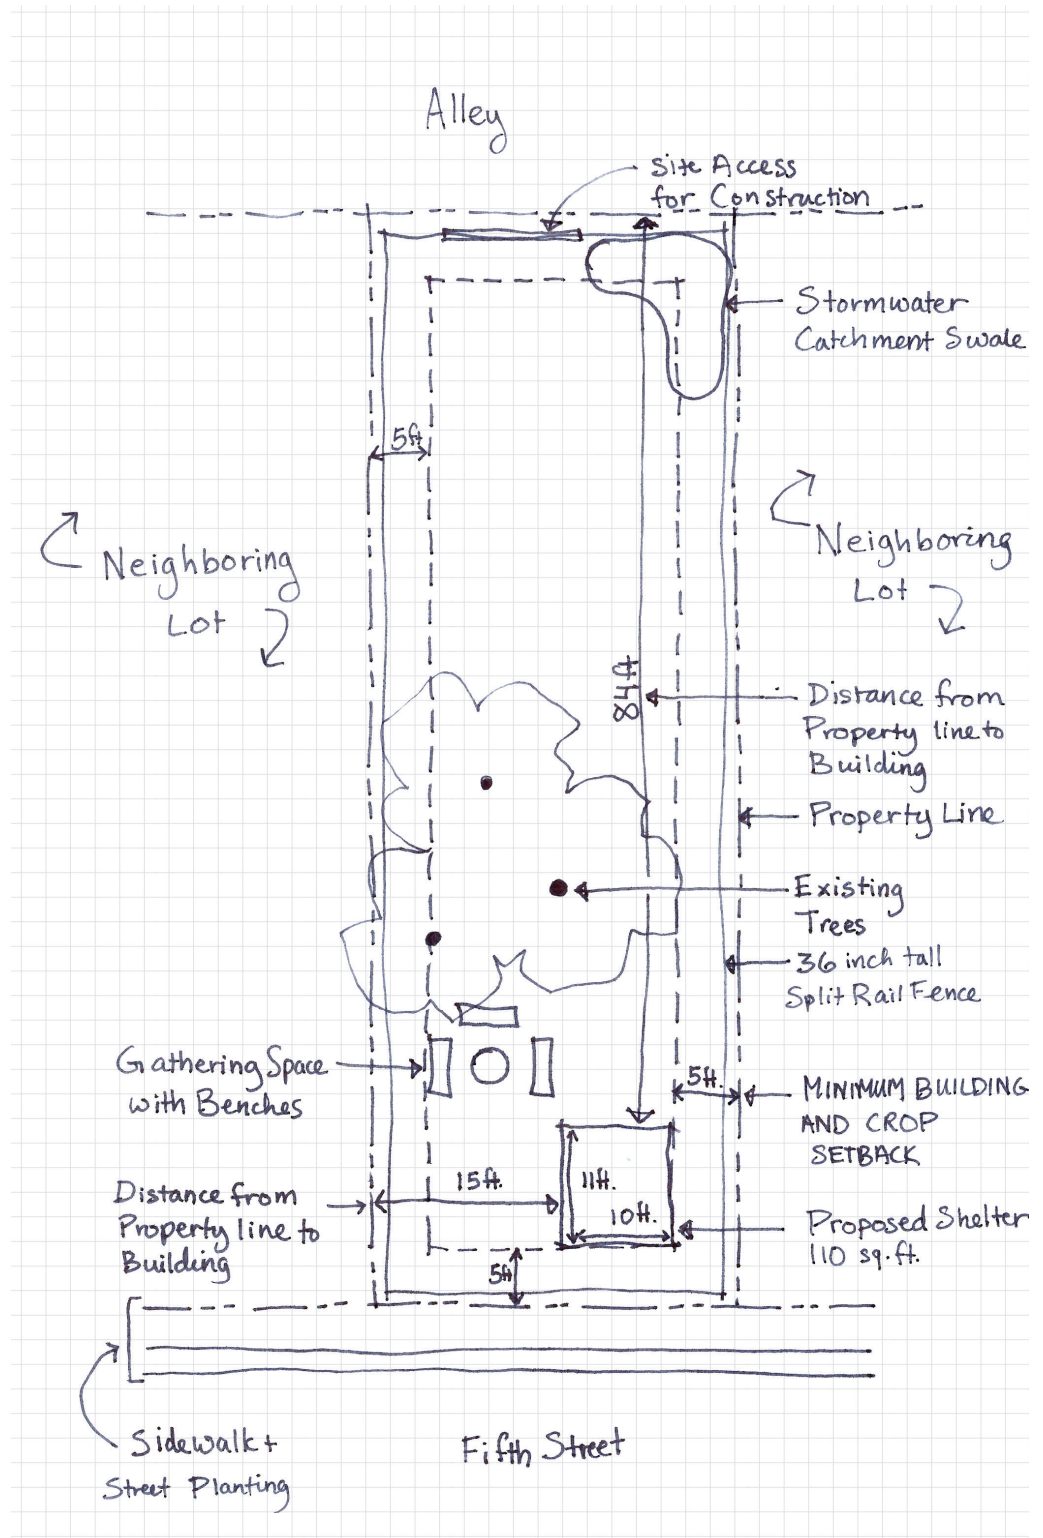 Alley
Site Access
for Construction
Stormwater
Catchment Swale
5ft
Neighboring
Lot
Neighboring
Lot
84ft
Distance from
Property line to
Building
Property Line
Existing
Trees
36 inch tall
Split Rail Fence
Gathering Space
with Benches
5ft.
MINIMUM BUILDING
AND CROP
SETBACK
15ft.
11ft.
10ft.
Distance from
Property line to
Building
Proposed Shelter
110 sq.ft.
5ft
Sidewalk +
Street Planting
Fifth Street